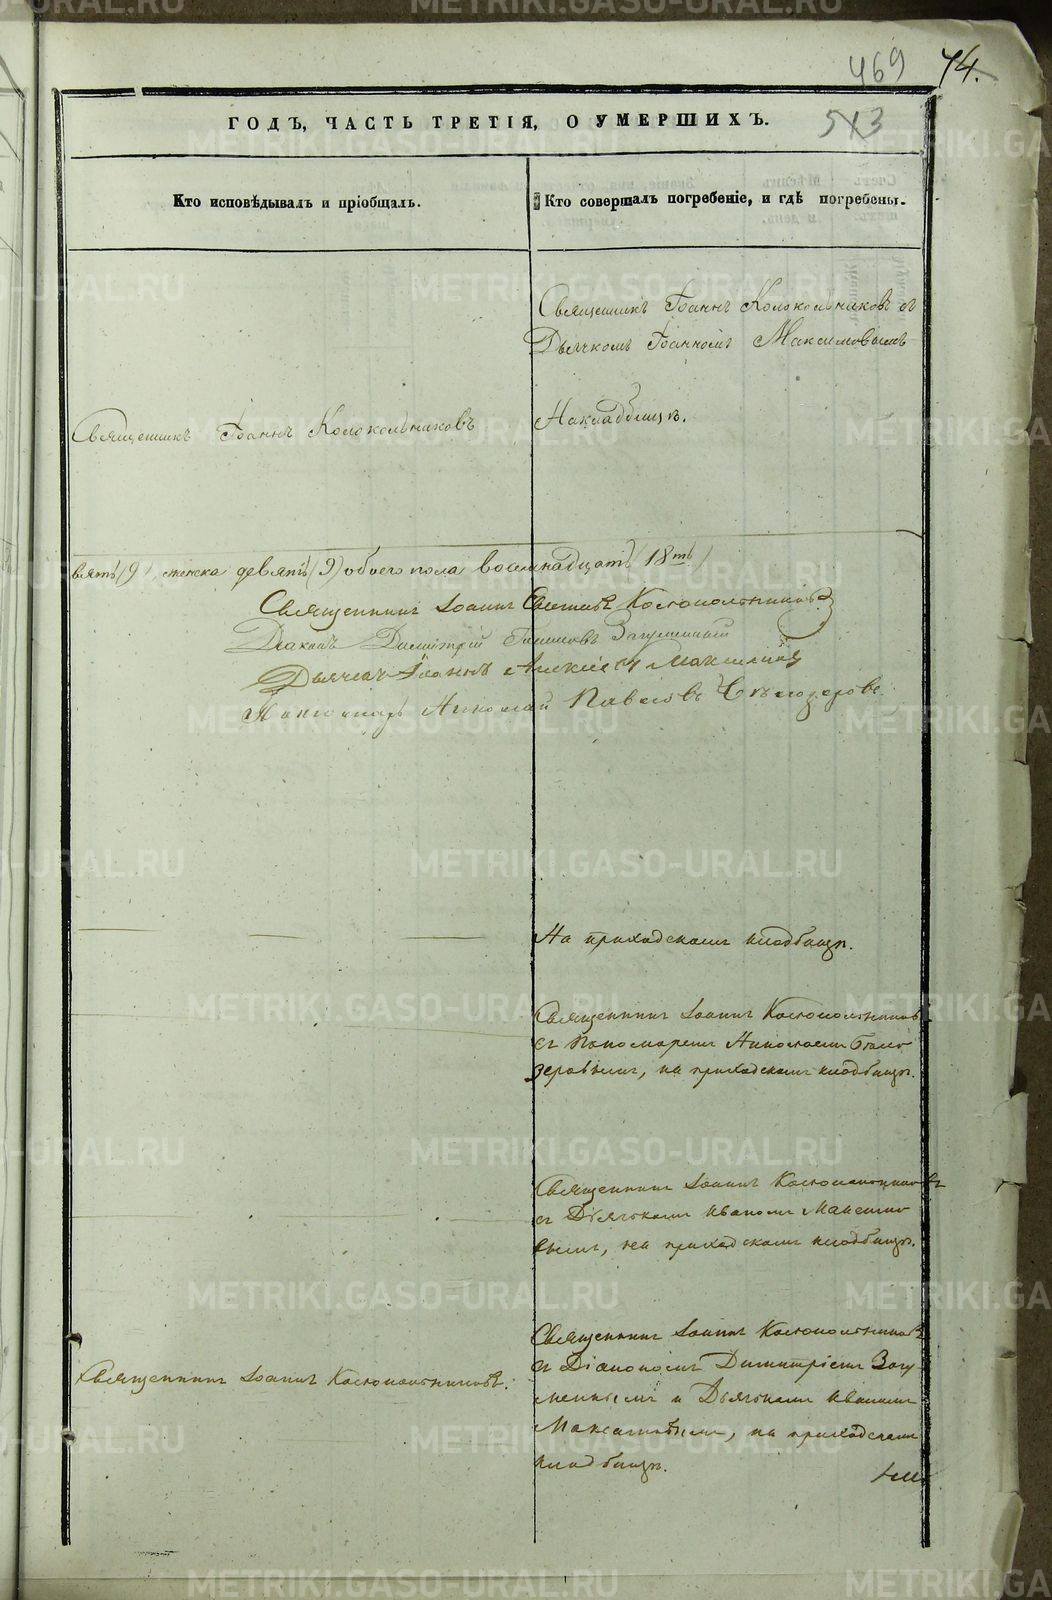 469 74.
513
ГОДЪ, ЧАСТЬ ТРЕТІЯ, О УМЕРШИХЪ.
Кто исповѣдывалъ и пріобщалъ.
Кто совершалъ погребеніе, и гдѣ погребены.
Священникъ Іоаннъ Колокольниковъ съ
Дьячкомъ Іоанномъ Максимовымъ
Священникъ Іоаннъ Колокольниковъ
На кладбищѣ.
вять (9) женска девять (9) обоего пола восемнадцать 18ть
Священникъ Іоаннъ Колокольниковъ
Діаконъ Димитрій Загуменный
Дьячекъ Іоаннъ Алексѣевъ Максимовъ
Пономарь Николай Павловъ
На приходскомъ кладбищѣ.
Священникъ Іоаннъ Колокольниковъ
съ Пономаремъ Николаемъ Бѣло-
зеровымъ, на приходскомъ кладбищѣ.
Священникъ Іоаннъ Колокольниковъ
съ Дьячкомъ Иваномъ Максимо-
вымъ, на приходскомъ кладбищѣ.
Священникъ Іоаннъ Колокольниковъ.
Священникъ Іоаннъ Колокольниковъ
съ Діакономъ Димитріемъ Загу-
меннымъ и Дьячкомъ Иваномъ
Максимовымъ, на приходскомъ
кладбищѣ.
METRIKI.GASO-URAL.RU